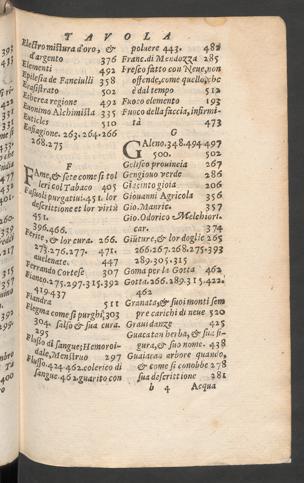 TAVOLA
Elestro mistura d'oro, &
d'argento 376
Elementi 492
Epilesia de Fanciulli 358
Erasistrato 502
Eiberea regione 492
Euonimo Alchimista 335
Euticles 510
Enfiagione. 263. 264. 266
268. 275
F
FAme, & sete come si tol
leri col Tabaco 405
Fasuoli purgatiui. 451. lor
descrittione et lor virtù
451.
396. 466.
Ferite, & lor cura. 266.
273. 276. 277. 471.
auelenate. 447
Ferrando Cortese 307
Fianco. 275. 297. 315. 392
419. 437
Fiandra 511
Flegma come si purghi, 303
304. salso & sua cura.
295
Flusso di sangue; Hemoroi-
dale, Menstruo 297
Flusso. 424. 462. colerico di
sangue. 462. guarito con
poluere 443. 482
Franc. di Mendozza 285
Fresco fatto con Neue, non
offende, come quello, che
è dal tempo 512
Fuoco elemento 193
Fuoco della faccia, infirmi-
tà 473
G
GAleno. 348. 494 497
500. 502
Gelisco prouincia 267
Gengiouo verde 286
Giacinto gioia 206
Giouanni Agricola 356
Gio. Manric. 357
Gio. Odorico Melchiori.
car. 374
Giuture, & lor doglie 265
266. 267. 268. 275. 393
289. 305. 315
Goma per la Gotta 462
Gotta. 266. 289. 315. 422.
462
Granata, & suoi monti sem
pre carichi di neue 520
Graui danze 425
Guacatan herba, & sua fi-
gura, & suo nome. 438
Guaiacan arbore quando,
& come si conobbe 278
sua descrittione 281
b 4 Acqua